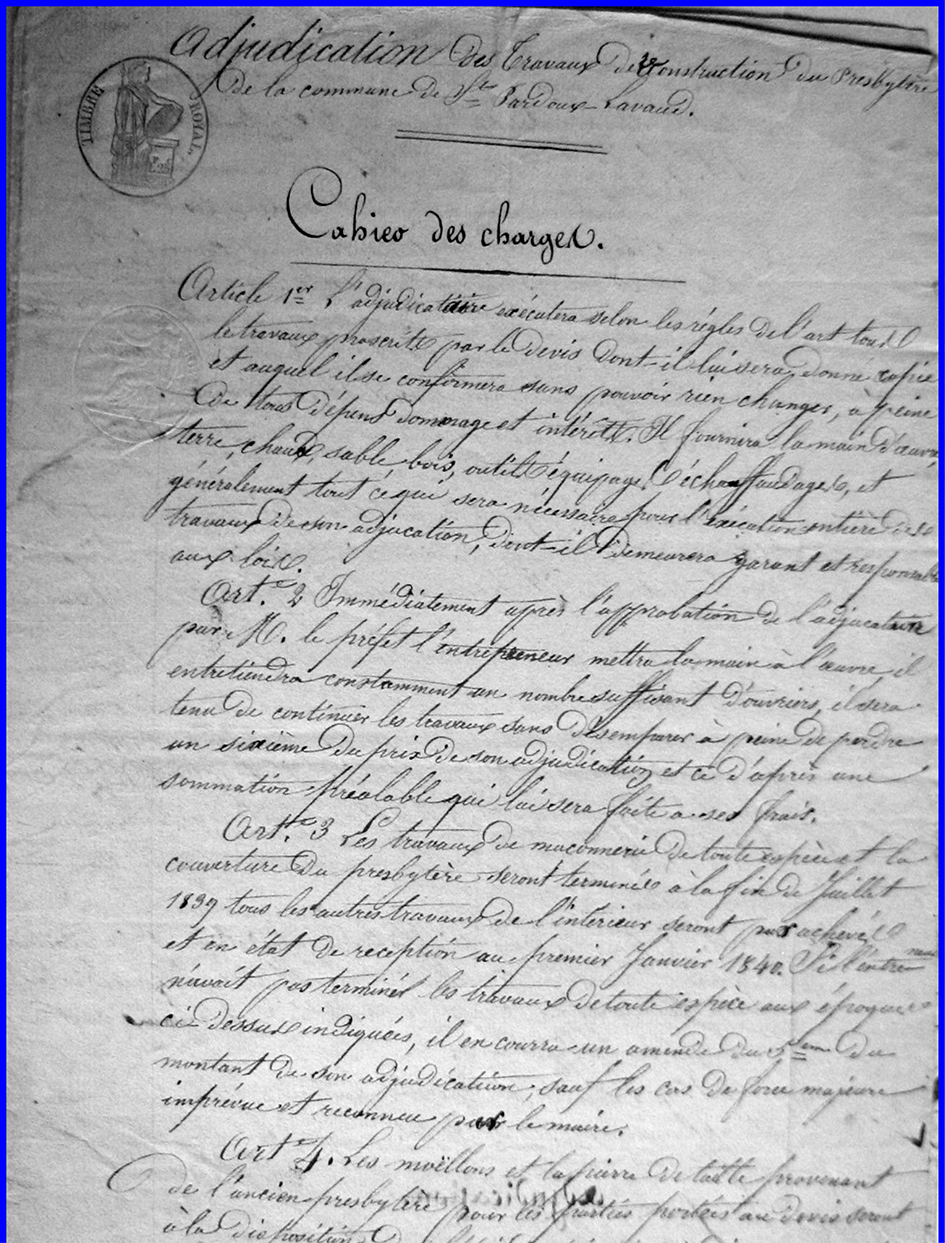 Adjudication Des Travaux de Reconstruction du Presbytère
De la commune de St Pardoux Lavaud.
TIMBRE ROYAL
Cahier des charges.
Article 1er L'adjudicataire exécutera selon les règles de l'art tous
le travaux proscrits par le devis dont-il lui sera donné copie
et auquel il se conformera sans pouvoir rien changer, à peine
De tous dépens domage et intérêts. Il fournira la main d'œuvre,
terre, chaux, sable, bois, outils équipages échauffaudages, et
généralement tout ce qui sera nécessaire pour l'exécution entière des
travaux de son adjucation, dont-il demeurera garant et responsable
aux lois.
Art.e 2 Immédiatement après l'approbation de l'adjucataire
par M. le préfet l'entrepreneur mettra la main à l'œuvre, il
entretiendra constamment un nombre suffisant d'ouvriers, il sera
tenu de continuer les travaux sans désemparer à peine de perdre
un sixième du prix de son adjudication et ce d'après une
sommation préalable qui lui sera faite a ses frais.
Art.e 3 Les travaux de maconnerie de toute espèce et la
couverture du presbytère seront terminés à la fin de Juillet
1839 tous les autres travaux de l'intérieur seront achevés
et en état de reception au premier Janvier 1840. Si l'entre
n'avait pas terminés les travaux de toute espèce aux époques
ci-dessus indiquées, il en courra un amende du 5eme du
montant de son adjudication, sauf les cas de force majeure
imprévue et reconnue par le maire.
Art.e 4. Les moëllons et la pierre de taille provenant
de l'ancien presbytère pour les parties portées au devis seront
à la disposition de